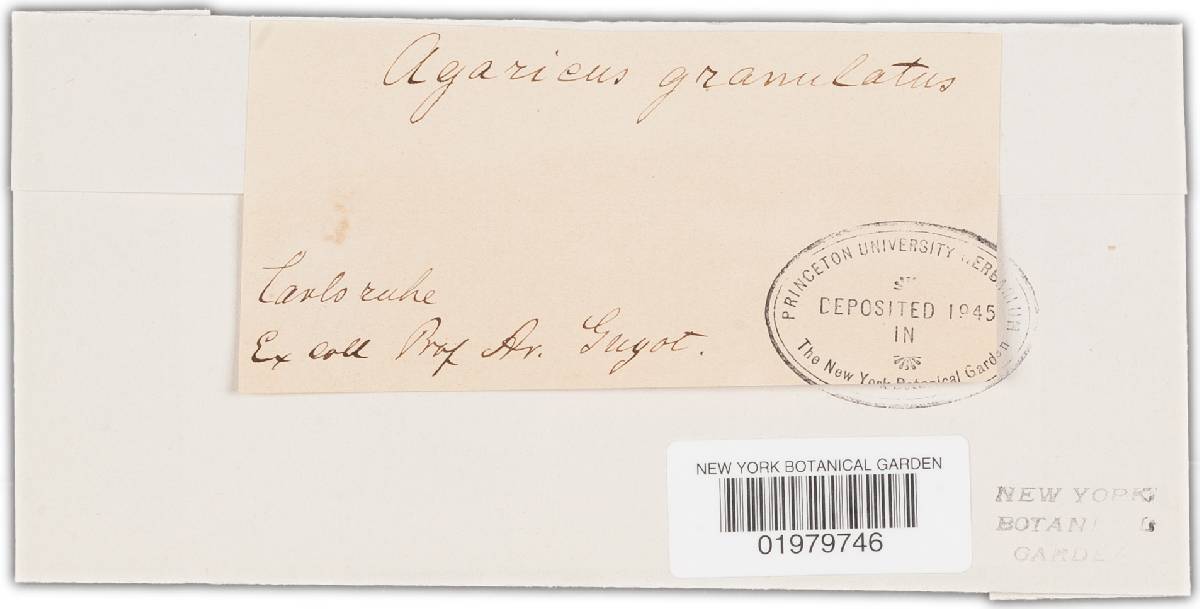 Agaricus granulatus
Carlsruhe
Ex coll Prof Ar. Guyot.
PRINCETON UNIVERSITY HERBARIUM
DEPOSITED 1945
IN
The New York Botanical Garden
NEW YORK BOTANICAL GARDEN
01979746
NEW YORK
BOTANI G
GARDEN